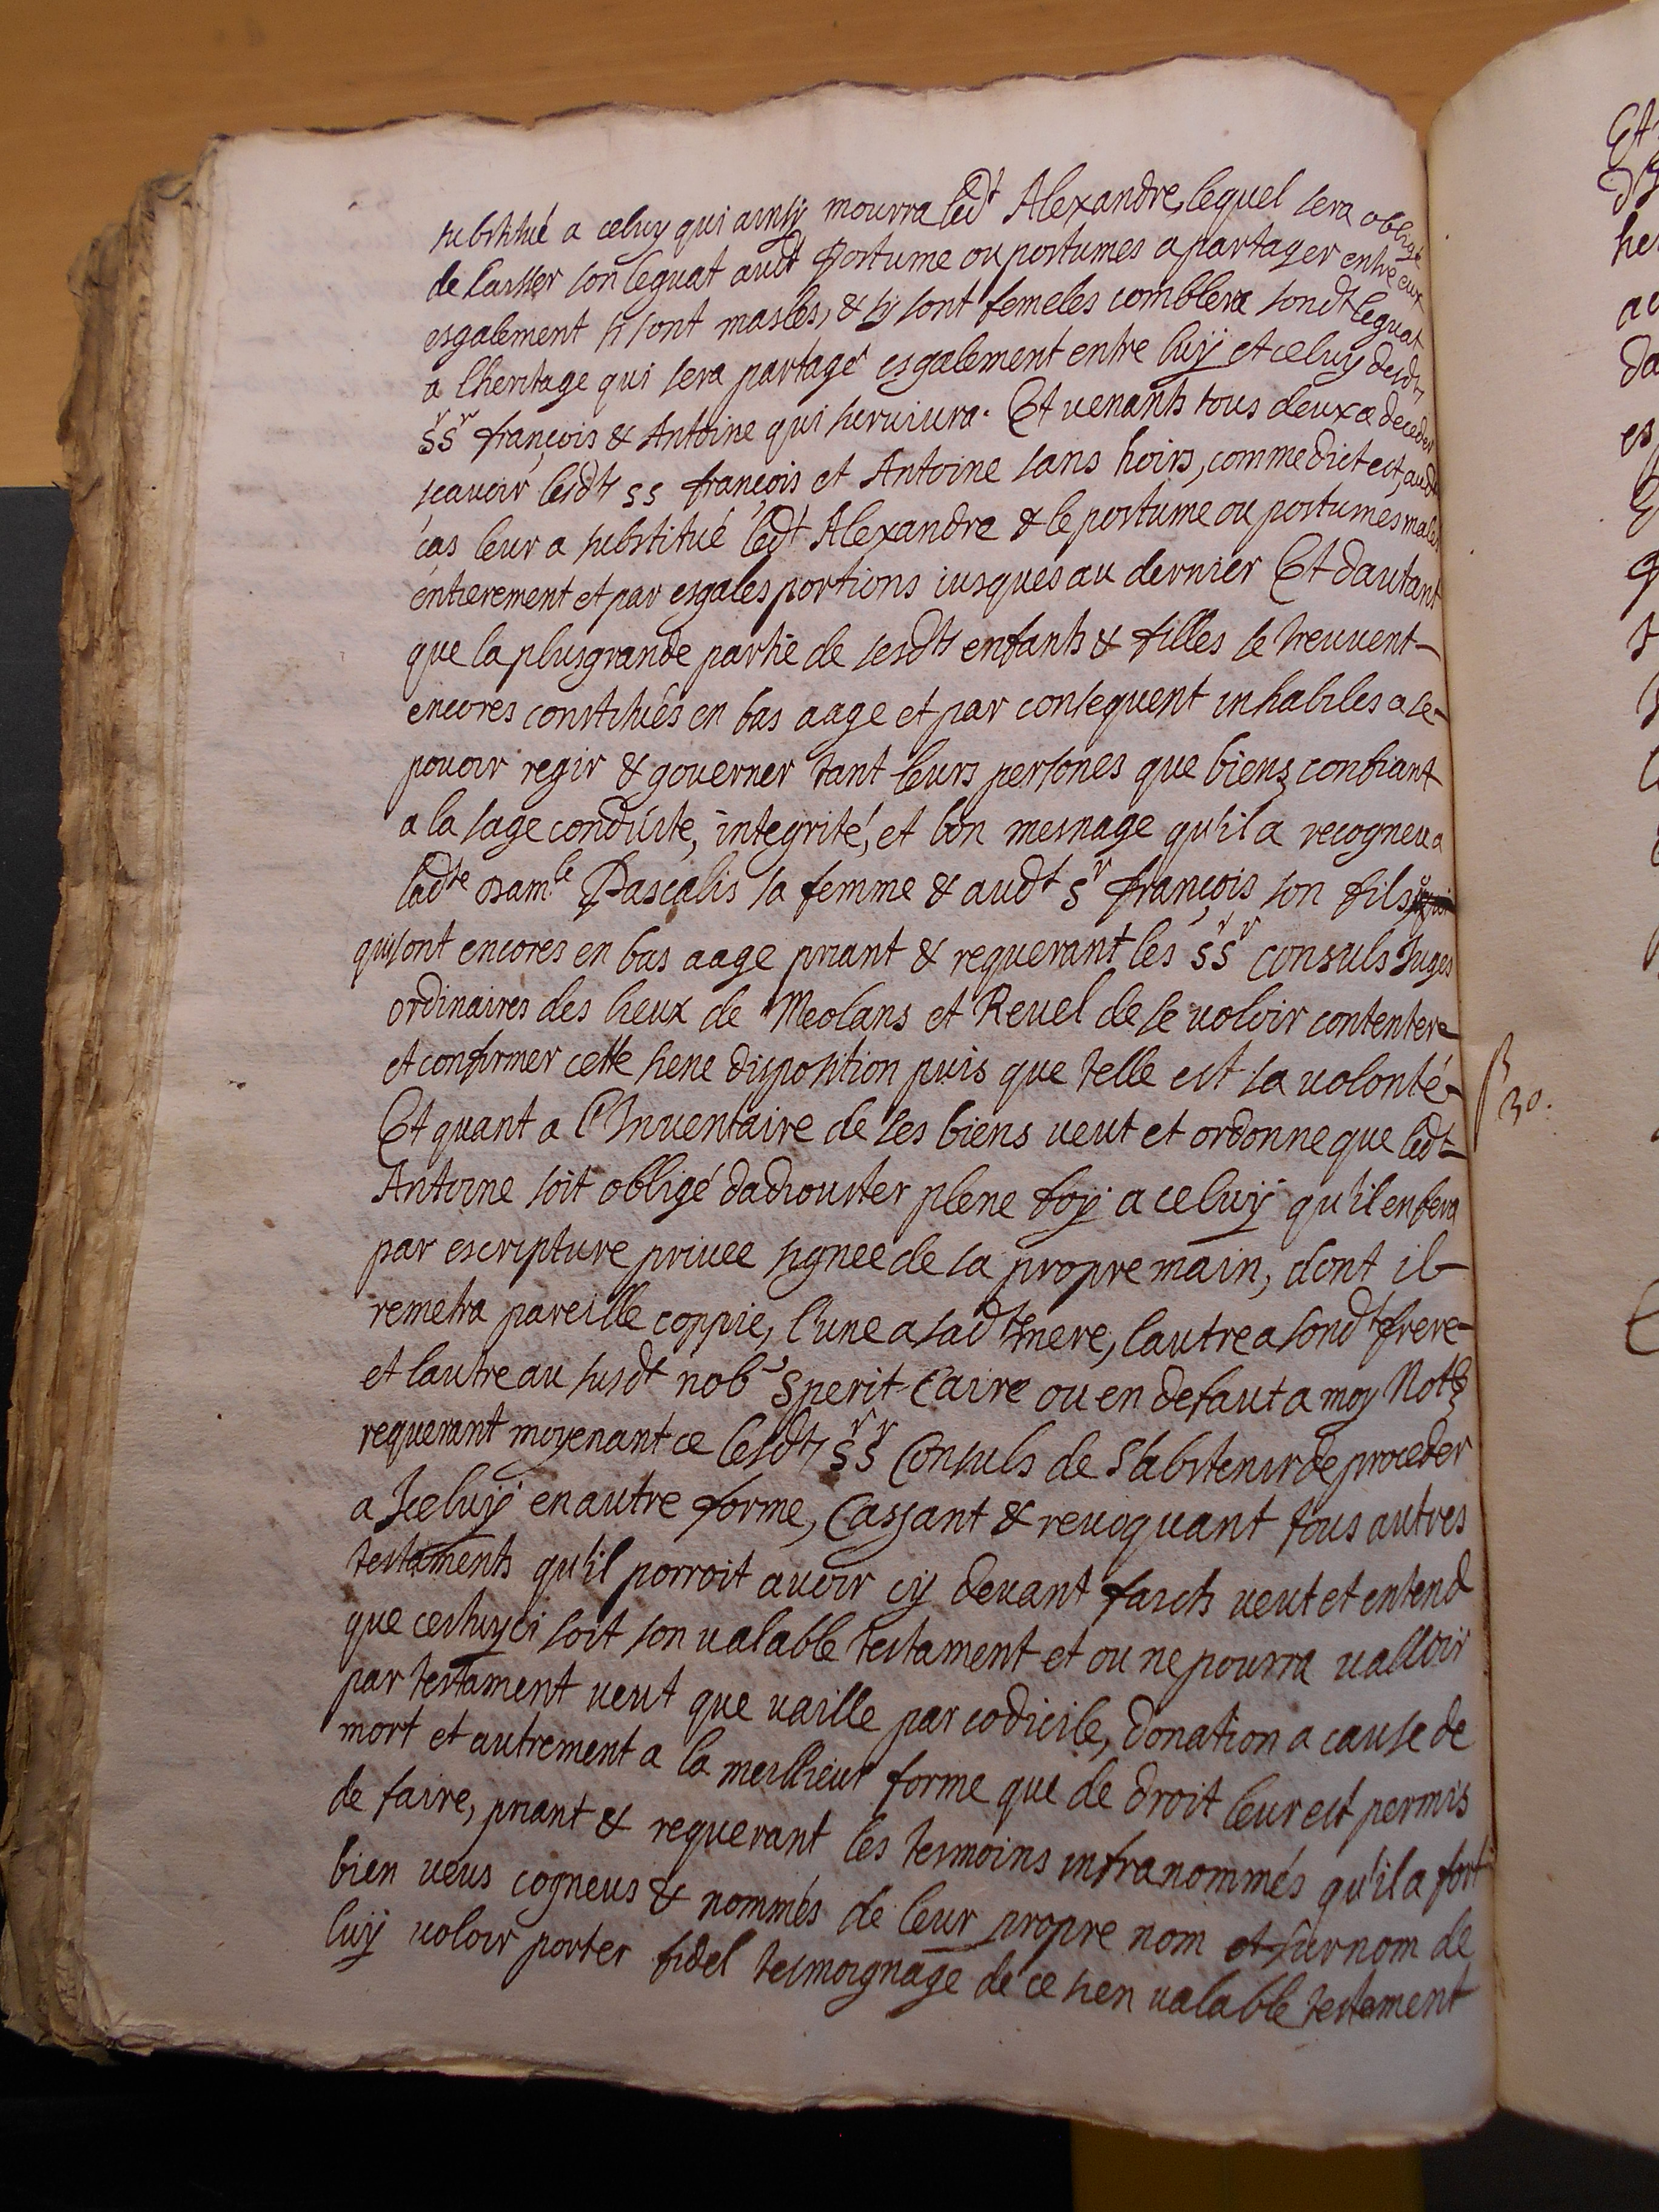 substitué a celuy qui ainsy mourra ledt Alexandre, lequel sera obligé
de laisser son leguat audt Postume ou postumes a partager entre eux
esgalement sy sont masles, & sy sont femeles comblera sondt leguat
a lheritage qui sera partagé esgalement entre luy et celuy desdts
ssrs françois & Antoine qui surviura. Et uenants tous deux a deceder
scauoir lesdts ss françois et Antoine sans hoirs, comme dict est, audt
cas leur a substitué ledt Alexandre & le postume ou postumes males
entierement et par esgales portions iusques au dernier Et dautant
que la plusgrande partie de sesdts enfants & filles se treuvent
encores constitués en bas aage et par consequent inhabiles a se
pouoir regir & governer tant leurs persones que biens confiant
a la sage conduite, integrité, et bon mesnage qu'il a recogneu a
ladte damle Pascalis sa femme & audt sr françois son fils
qui sont encores en bas aage priant & requerant les srs consuls Juges
ordinaires des lieux de Meolans et Revel de se voloir contenter
et confirmer cette siene disposition puis que telle est sa uolonté
Et quant a l'Inuentaire de ses biens ueut et ordonne que ledt
Antoine soit obligé dadiouster plene foy a celuy qu'il en fera
par escripture priuee signee de sa propre main, dont il
remetra pareille coppie, l'une a sadte mere, lautre a sondt frere
et lautre au susdt nobe Sperit Caire ou en defaut a moy Notre
requerant moyenant ce lesdts srs Consuls de s'abstenir de proceder
a Iceluy en autre forme, Cassant & reuoquant tous autres
testaments qu'il porroit auoir cy deuant faicts ueut et entend
que cestuy ci soit son ualable testament et ou ne pourra valloir
par testament ueut que uaille par codicile, donation a cause de
mort et autrement a la meillieur forme que de droit leur est permis
de faire, priant & requerant les tesmoins infranommés qu'il a fort
bien ueus cogneus & nommés de leur propre nom et surnom de
luy uoloir porter fidel tesmoignage de ce sien ualable testament